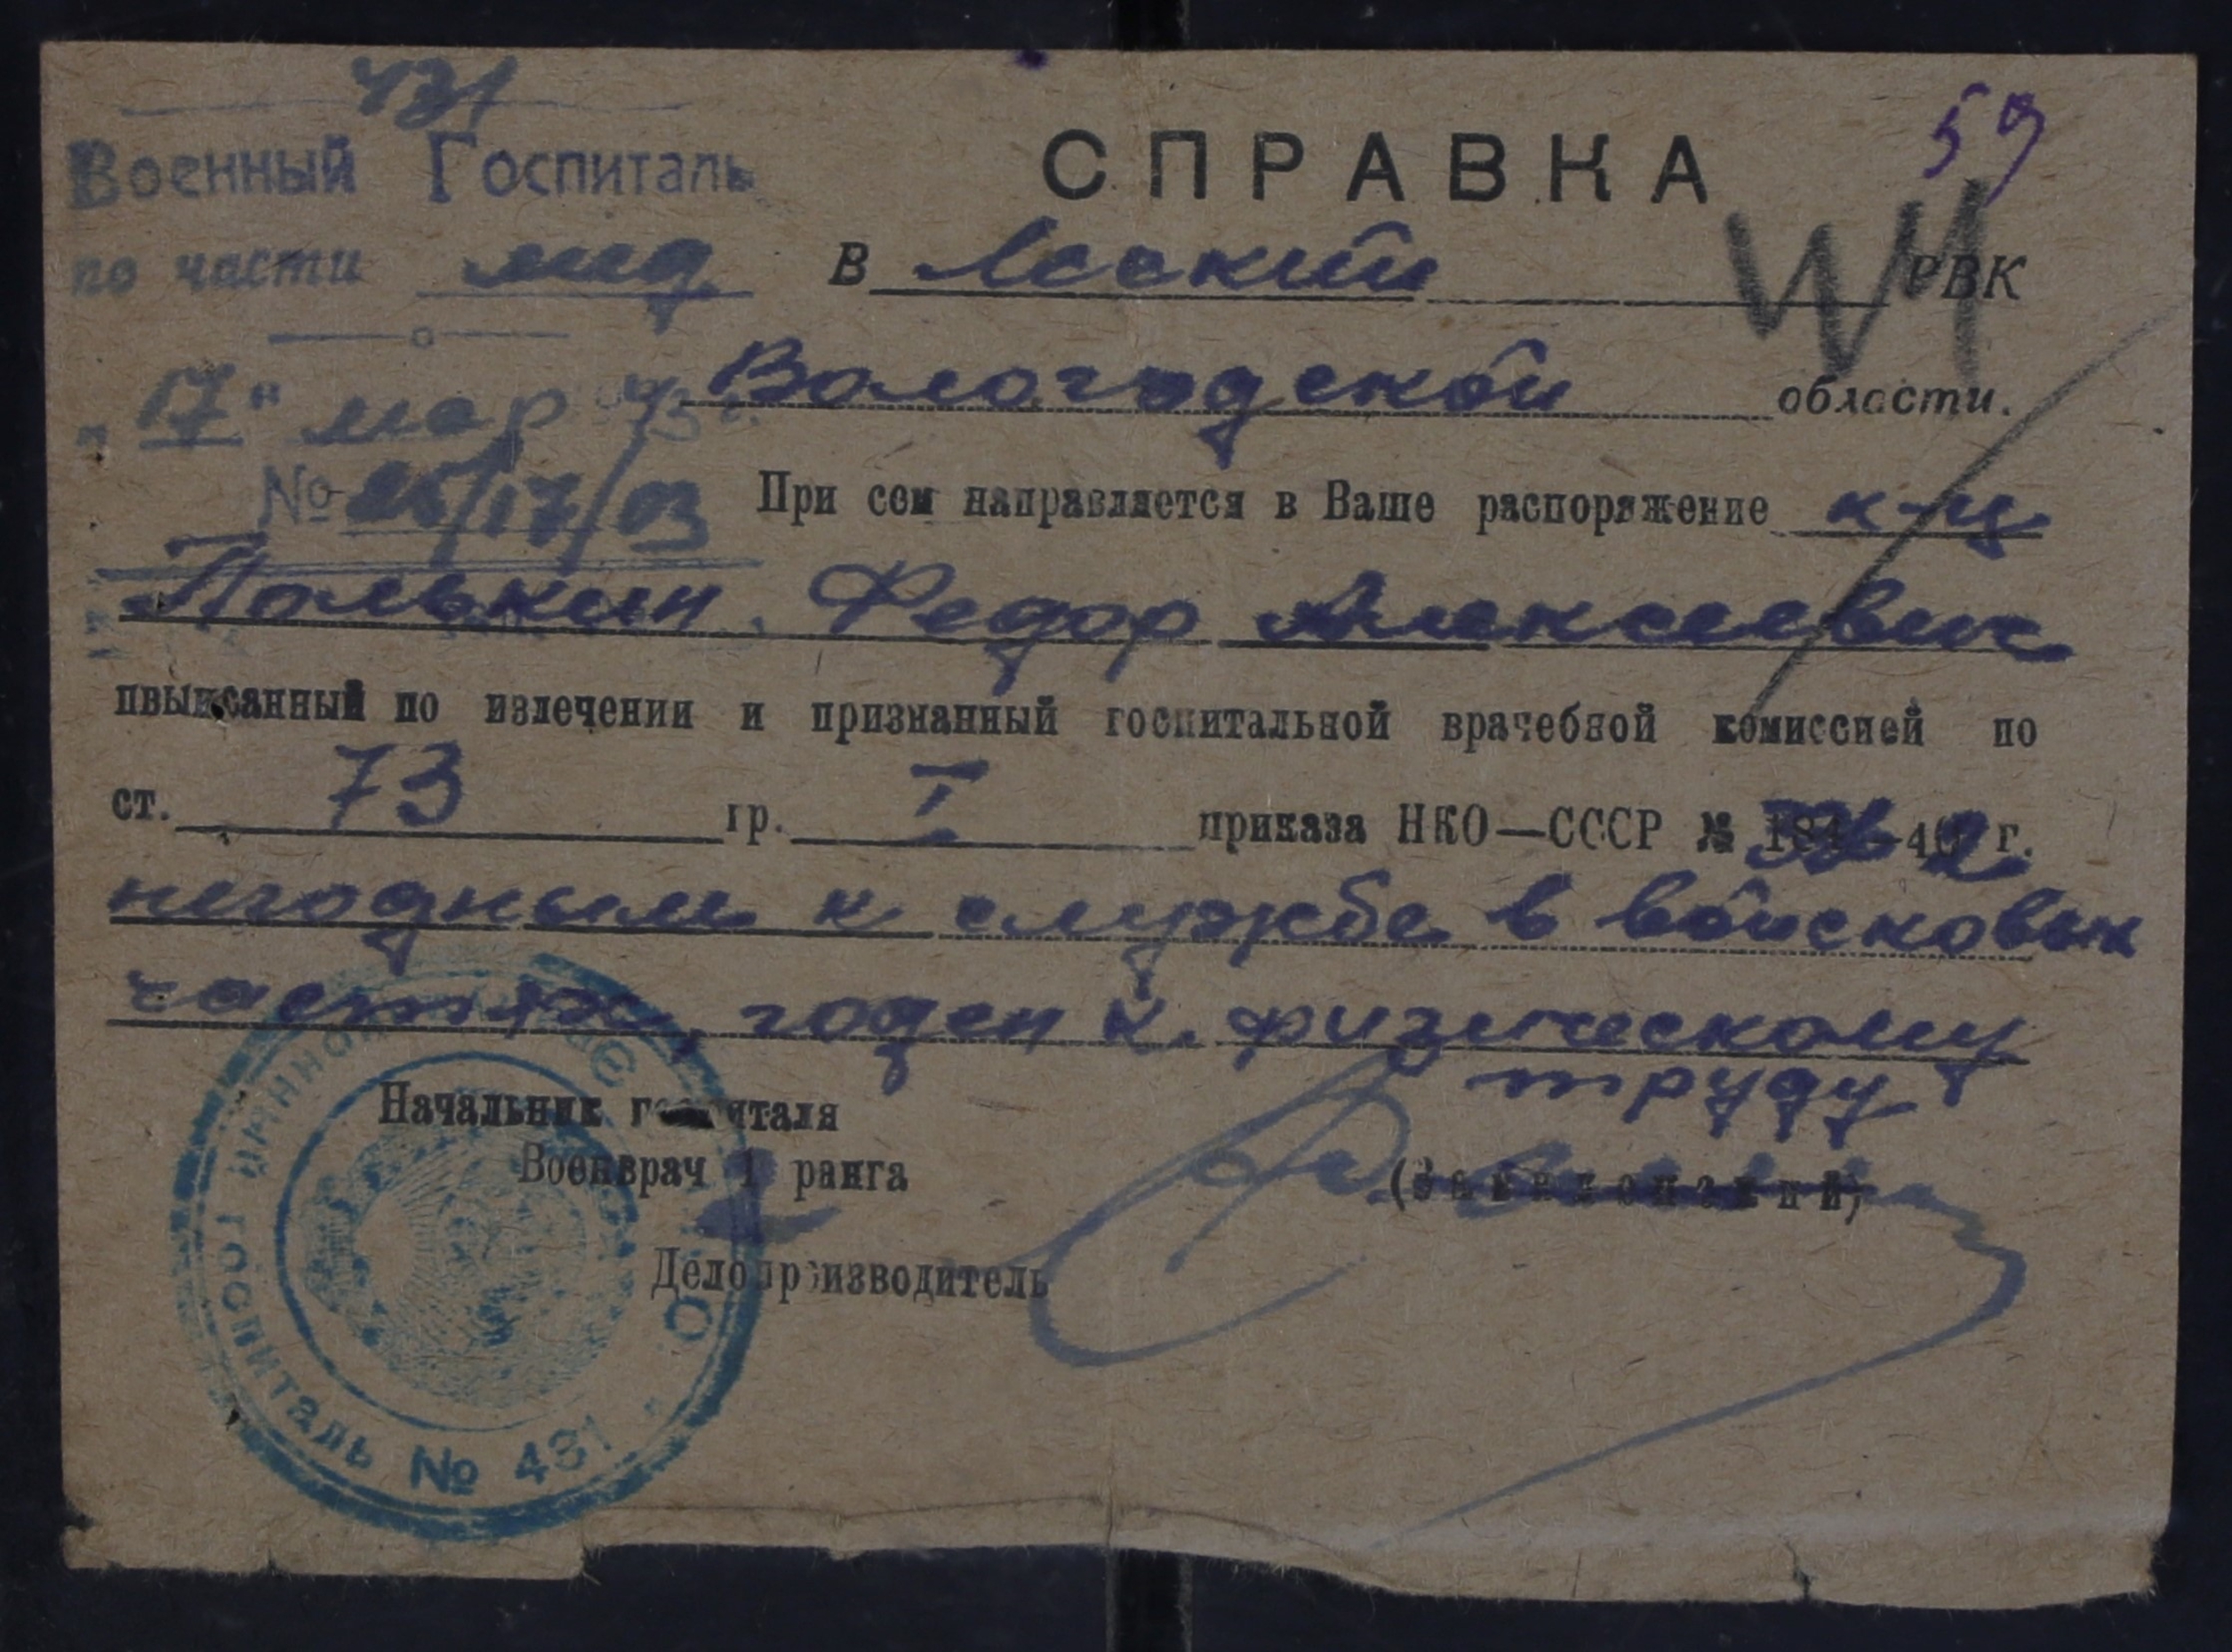 431
59
Военный Госпиталь
СПРАВКА
по части мед
В РВК
"17" мар
Вологодской области.
№ 26/17/03
При сем направляется в Ваше распоряжение к-ц
Полькин Федор Алексеевич
выписанный по излечении и признанный госпитальной врачебной комиссией по
ст. 73 гр. I приказа НКО—СССР № г.
негодным к службе в войсковых
частях, годен к физическому
труду
Начальник госпиталя
Военврач 1 ранга
Делопроизводитель
ГОСПИТАЛЬ № 431